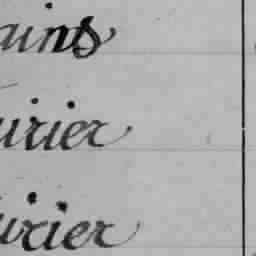 ains
urier
urier